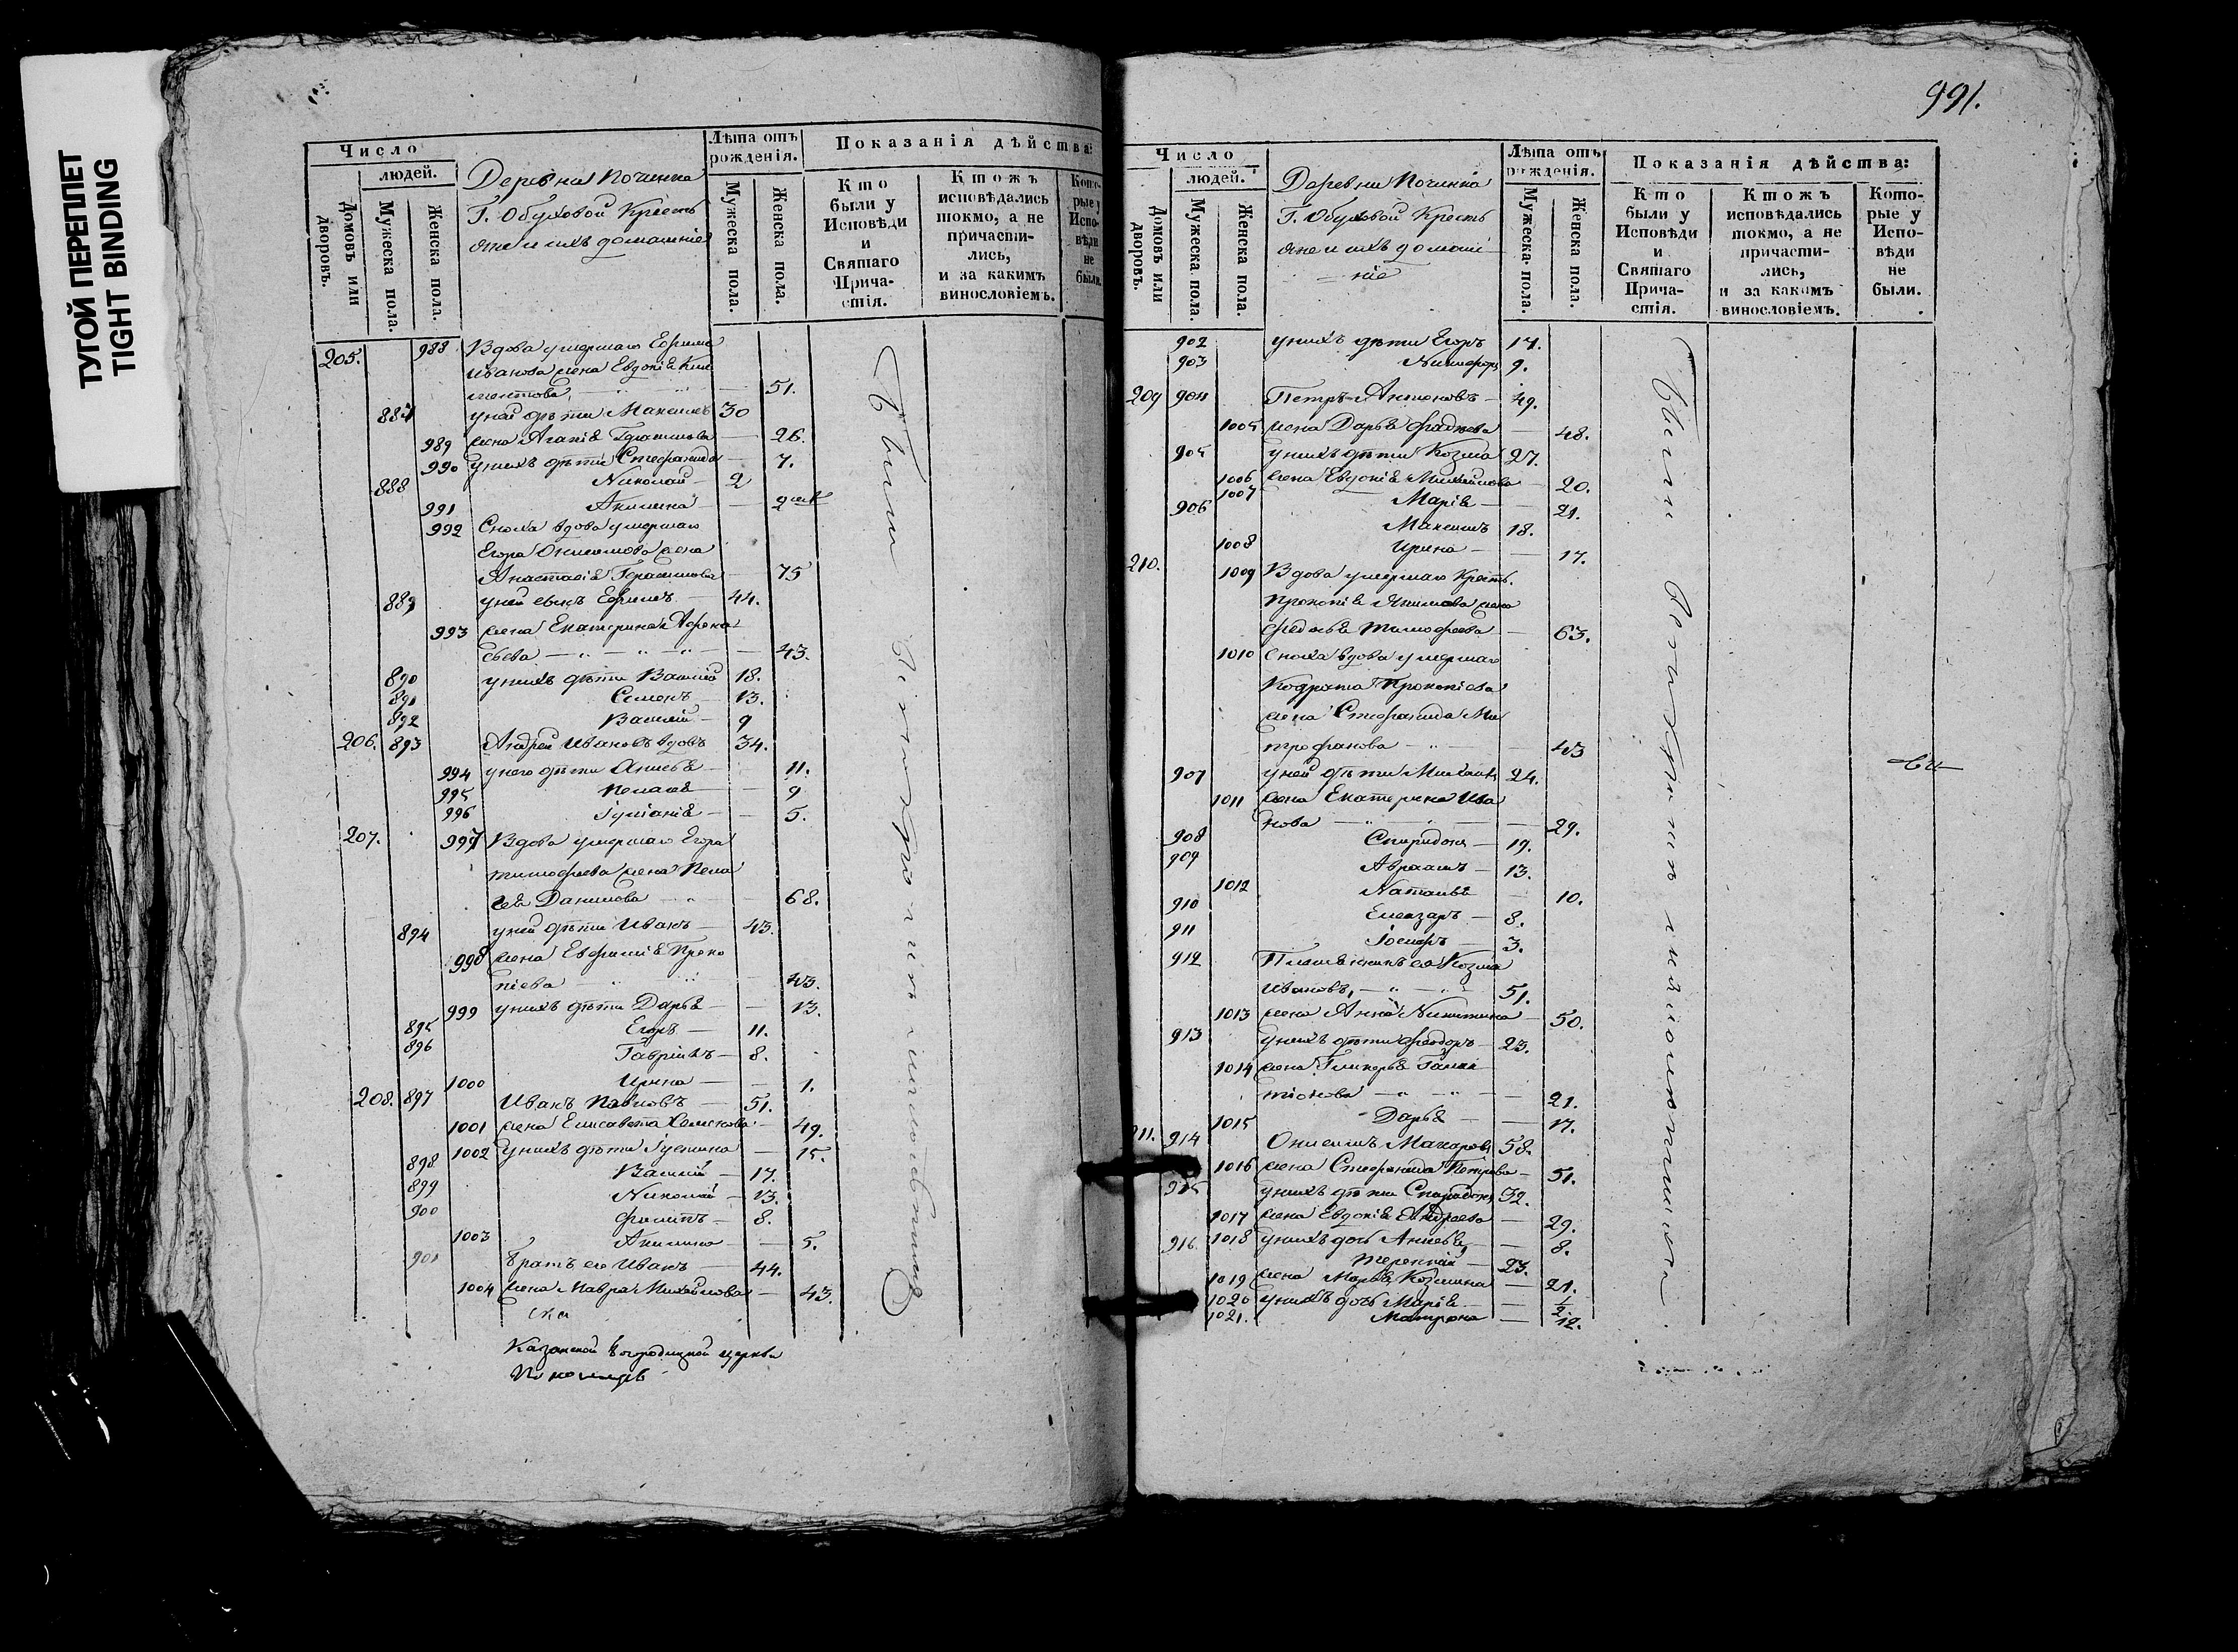 ТУГОЙ ПЕРЕПЛЕТ
TIGHT BINDING
Число
людей.
Домовъ или дворовъ.
Мужеска пола.
Женска пола.
Деревни Починка
Г. Обуховой Кресть
яне и ихъ домашніе
Лѣта отъ рожденія.
Мужеска пола.
Женска пола.
Показанія дѣйства:
Кто были у Исповѣди и Святаго Прича-стія.
Ктожъ исповѣдались токмо, а не причасти-лись, и за какимъ винословіемъ.
Кото-рые у Испо-вѣди не были.
205. 988 Вдова умершаго Ефима
Иванова жена Евдокія Кли
ментова 51.
887 у ней дѣти Максимъ 30
989 жена Агапія Герасимова 26.
990 у нихъ дѣти Стефанида 7.
888 Николай 2
991 Акилина
992 Сноха вдова умершаго
Егора Онисимова жена
Анастасія Герасимова 75
889 у ней сынъ Ефимъ 44.
993 жена Екатерина Афана
сьева 43.
890 у нихъ дѣти Василій 18.
891 Семенъ 13.
892 Василій 9
206. 893 Андрей Ивановъ вдовъ 34.
994 у него дѣти Анисья 11.
995 Пелагія 9
996 Іуліанія 5.
207. 997 Вдова умершаго Егора
Тимофеева жена Пела
гея Данилова 68.
894 у ней дѣти Иванъ 43.
998 жена Евфимія Проко
піева 43.
999 у нихъ дѣти Дарья 13.
895 Егоръ 11.
896 Гавріилъ 8.
1000 Ирина 1.
208. 897 Иванъ Павловъ 51.
1001 жена Елисавета 49.
1002 у нихъ дѣти Іустина 15.
898 Василій 17.
899 Николай 13.
900 Филипъ 8.
1003 Акилина 5.
901 братъ его Иванъ 44.
1004 жена Мавра Михайлова 43.
Были
Казанской Богородицкой церкви
991.
Число
людей.
Домовъ или дворовъ.
Мужеска пола.
Женска пола.
Деревни Починка
Г. Обуховой Кресть
яне и ихъ домаш
ніе
Лѣта отъ рожденія.
Мужеска пола.
Женска пола.
Показанія дѣйства:
Кто были у Исповѣди и Святаго Прича-стія.
Ктожъ исповѣдались токмо, а не причасти-лись, и за какимъ винословіемъ.
Кото-рые у Испо-вѣди не были.
902 у нихъ дѣти Егоръ 17.
903 Никифоръ 9.
209 904 Петръ 49.
1005 жена Дарья Фадѣева 48.
905 у нихъ дѣти Козма 27.
1006 жена Евдокія Михайлова 20.
1007 Марія 21.
906 Максимъ 18.
1008 Ирина 17.
210. 1009 Вдова умершаго Крест.
Прокопія Якимова жена
Федосья Тимофеева 63.
1010 Сноха вдова умершаго
Кодрата Прокопіева
жена Стефанида Ми
трофанова 43
907 у ней дѣти Михаилъ 24.
1011 жена Екатерина Ива
нова 29.
908 Спиридонъ 19.
909 Авраамъ 13.
1012 Наталья 10.
910 Елеазаръ 8.
911 Іосифъ 3.
912 Племянникъ ея Козма
Ивановъ, 51.
1013 жена Анна Никитина 50.
913 у нихъ дѣти Феодоръ 23.
1014 жена Гликерья Галак
тіонова 21.
1015 Дарья 17.
211. 914 Онисимъ Макаровъ 58.
1016 жена Стефанида Петрова 51.
915 у нихъ дѣти Спиридонъ 32.
1017 жена Евдокія Андреева 29.
1018 у нихъ дочь Анисья 8.
916 Терентій 23.
1019 жена Марья Козмина 21.
1020 у нихъ дочь Марія 1/2
1021. Матрона 12.
Были